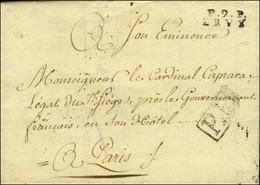 P.9.P.
À Son Eminence
Monseigneur le Cardinal Caprara,
Légat du St Siège, près le Gouvernement
français, en son Hôtel
à Paris